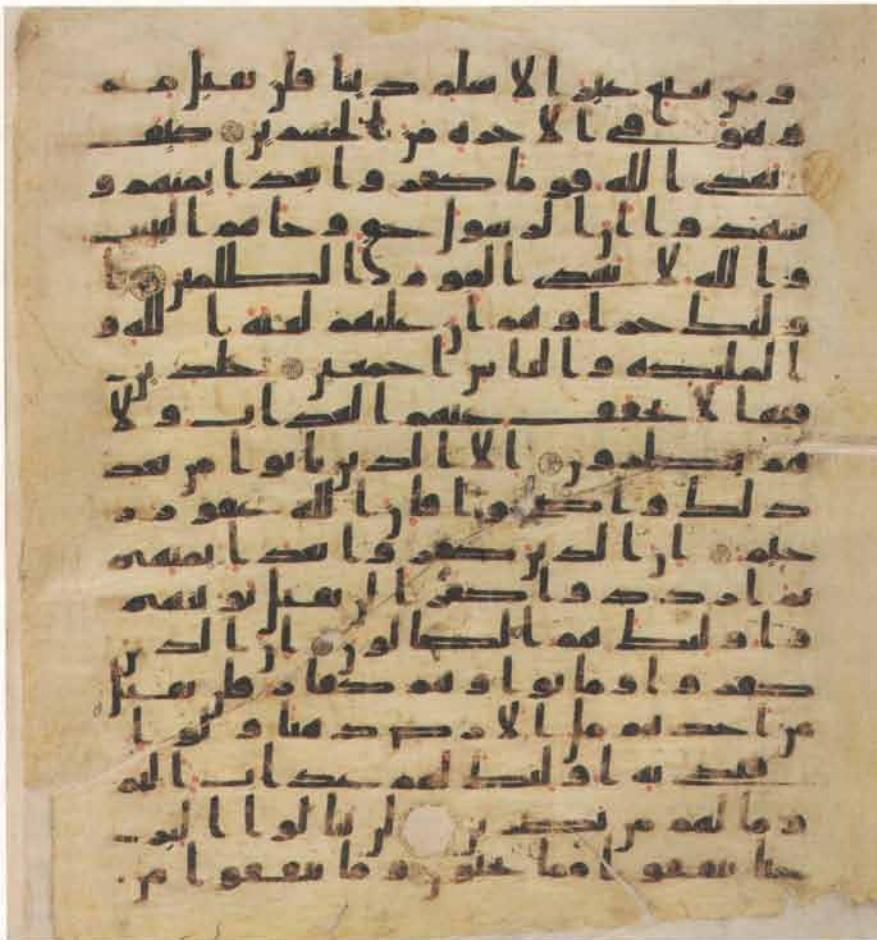 ومن يبتغ غير الاسلم دينا فلن يقبل منه
وهو في الاخرة من الخسرين كيف
يهدي الله قوما كفروا بعد ايمنهم و
شهدوا ان الرسول حق وجاهم البينت
والله لا يهدي القوم الظلمين ا
ولئك جزاوهم ان عليهم لعنة الله و
الملئكة والناس اجمعين خلدين
فيها لا يخفف عنهم العذاب ولا
هم ينظرون الا الذين تابوا من بعد
ذلك واصلحوا فان الله غفور ر
حيم ان الذين كفروا بعد ايمنهم
ثم ازدادوا كفرا لن تقبل توبتهم
واولئك هم الضالون ان الذين
كفروا وماتوا وهم كفار فلن يقبل
من احدهم مل الارض ذهبا ولو ا
فتدى به اولئك لهم عذاب اليم
وما لهم من نصرين لن تنالوا البر
حتى تنفقوا مما تحبون وما تنفقوا من